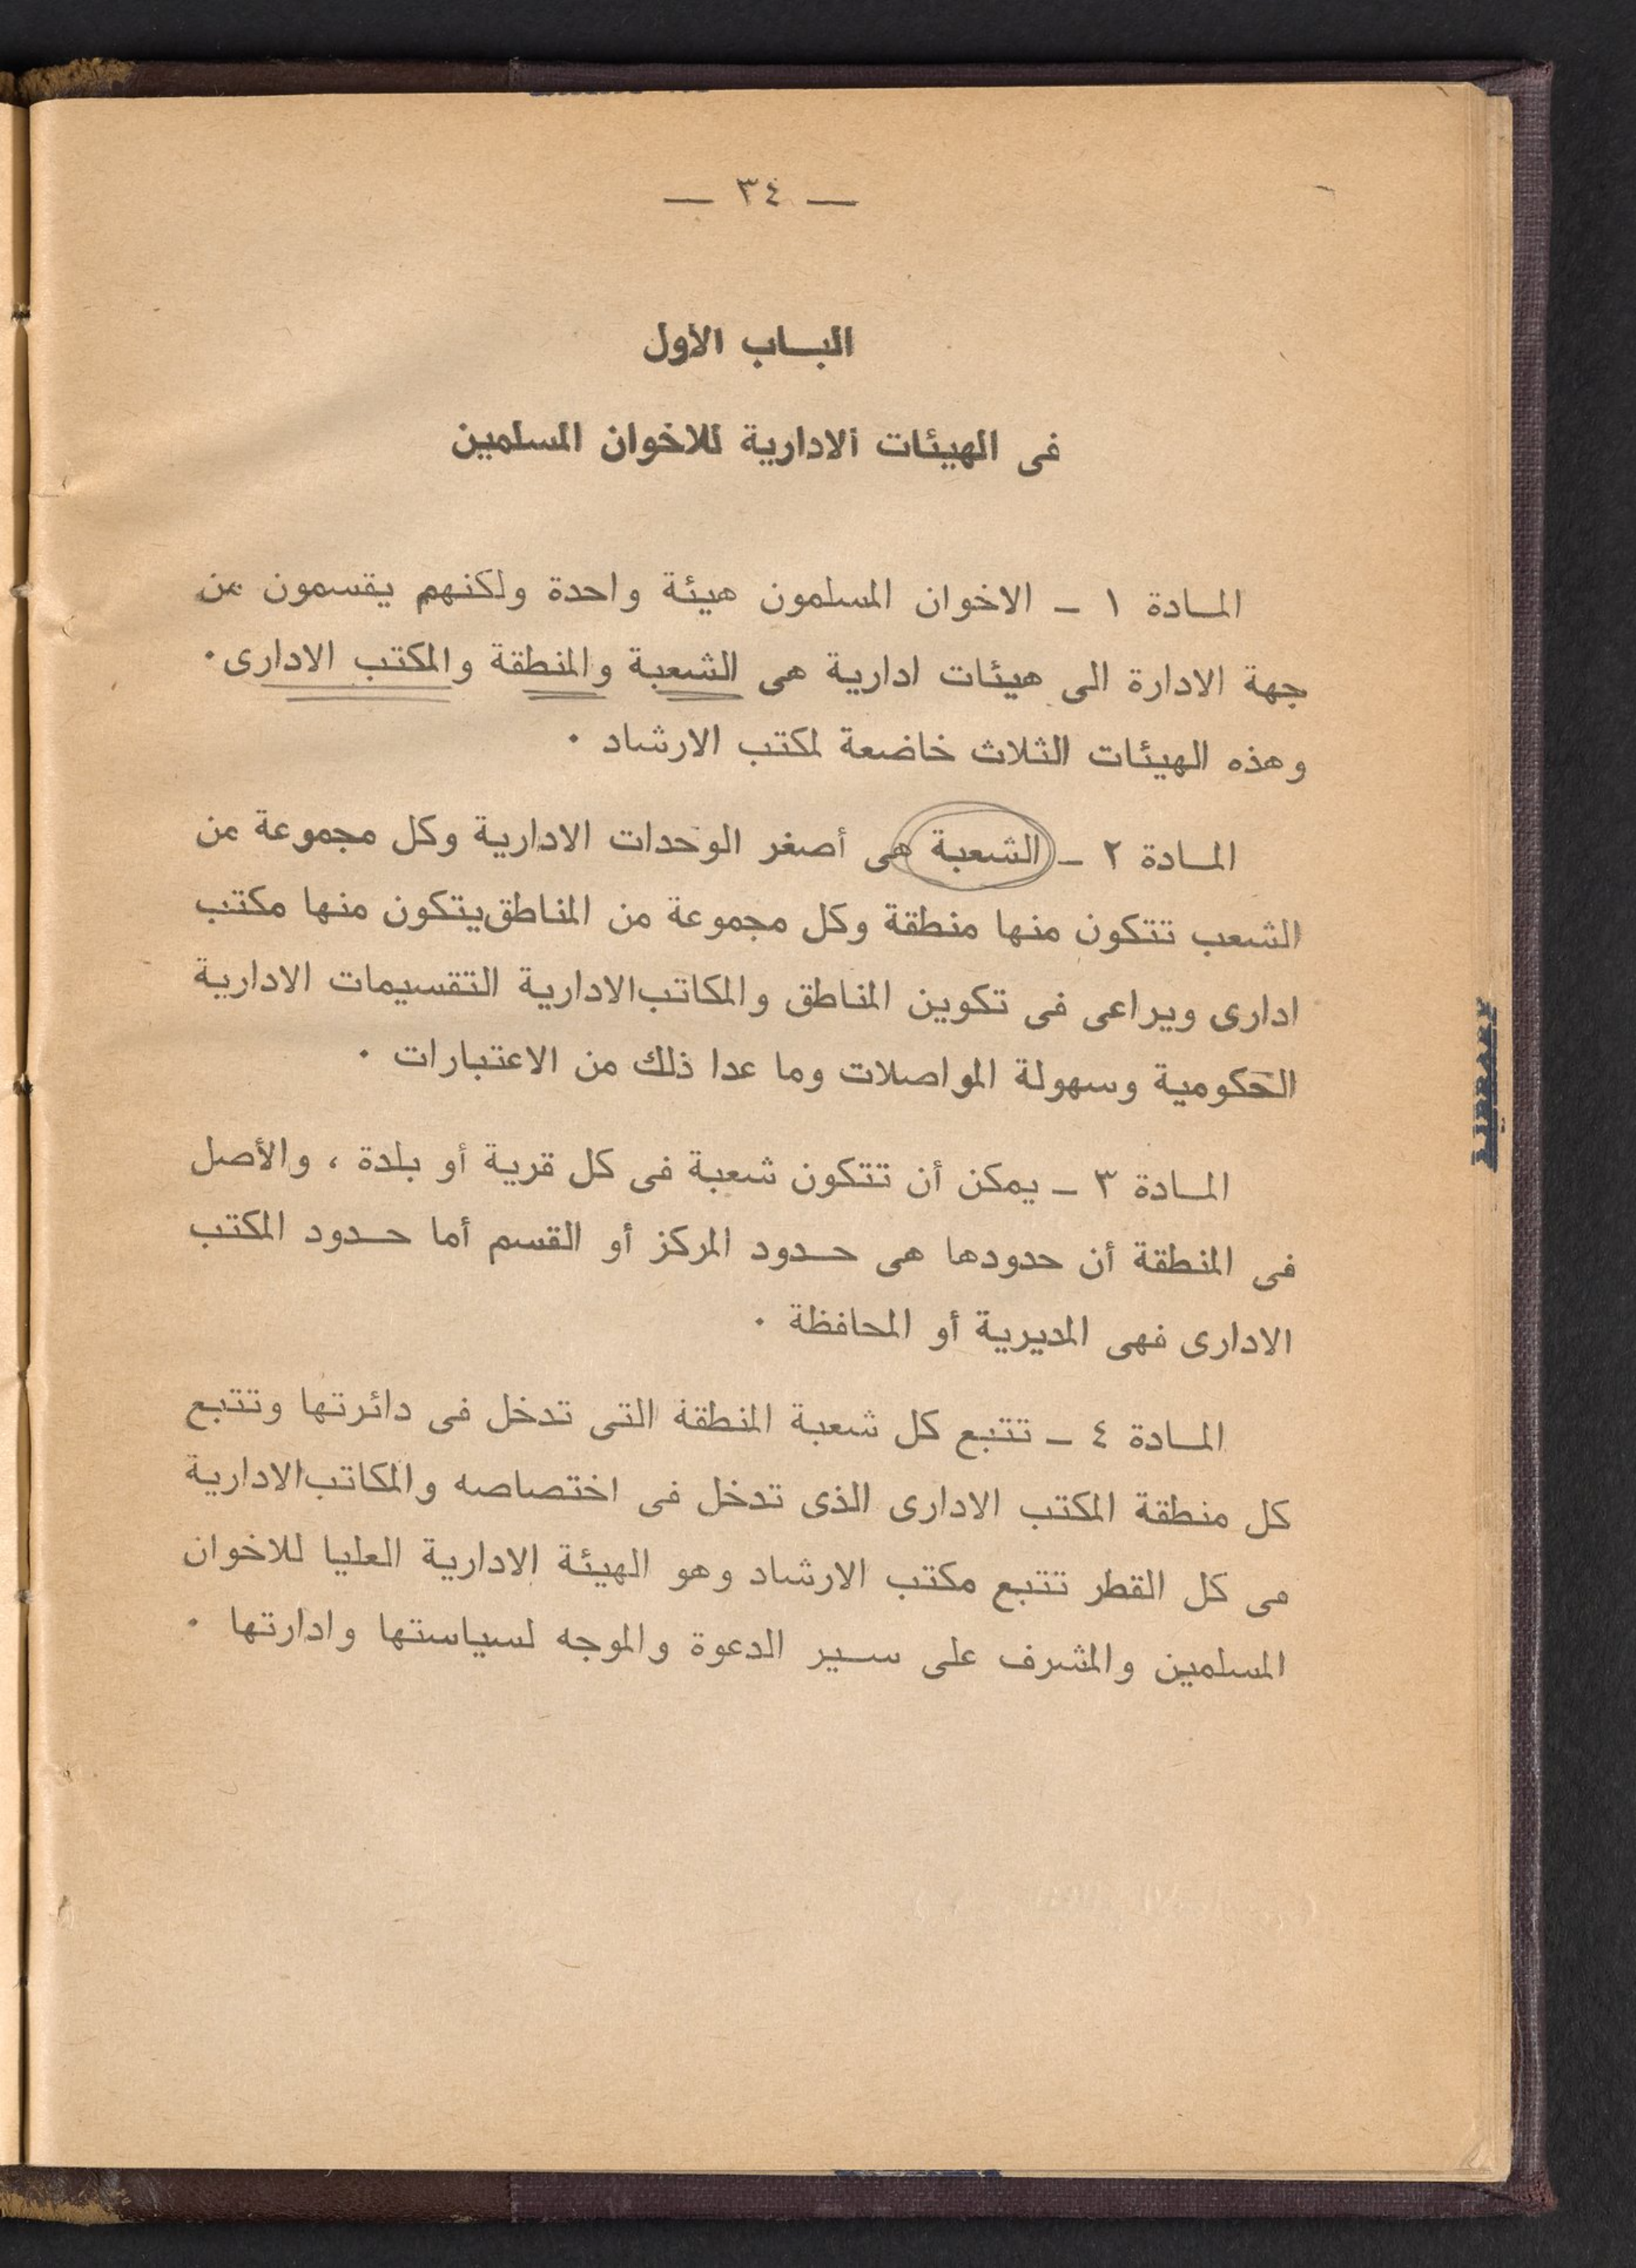 — ٣٤ —
البـاب الاول
فى الهيئات الادارية للاخوان المسلمين
المـادة ١ ـ الاخوان المسلمون هيئة واحدة ولكنهم يقسمون من
جهة الادارة الى هيئات ادارية هى الشعبة والمنطقة والمكتب الادارى٠
وهذه الهيئات الثلاث خاضعة لمكتب الارشاد ٠
المـادة ٢ ـ الشعبة هى أصغر الوحدات الادارية وكل مجموعة من
الشعب تتكون منها منطقة وكل مجموعة من المناطق يتكون منها مكتب
ادارى ويراعى فى تكوين المناطق والمكاتب الادارية التقسيمات الادارية
الحكومية وسهولة المواصلات وما عدا ذلك من الاعتبارات ٠
المـادة ٣ ـ يمكن أن تتكون شعبة فى كل قرية أو بلدة ، والأصل
فى المنطقة أن حدودها هى حـدود المركز أو القسم أما حـدود المكتب
الادارى فهى المديرية أو المحافظة ٠
المـادة ٤ ـ تتبع كل شعبة المنطقة التى تدخل فى دائرتها وتتبع
كل منطقة المكتب الادارى الذى تدخل فى اختصاصه والمكاتب الادارية
فى كل القطر تتبع مكتب الارشاد وهو الهيئة الادارية العليا للاخوان
المسلمين والمشرف على سـير الدعوة والموجه لسياستها وادارتها ٠
LIBRARY